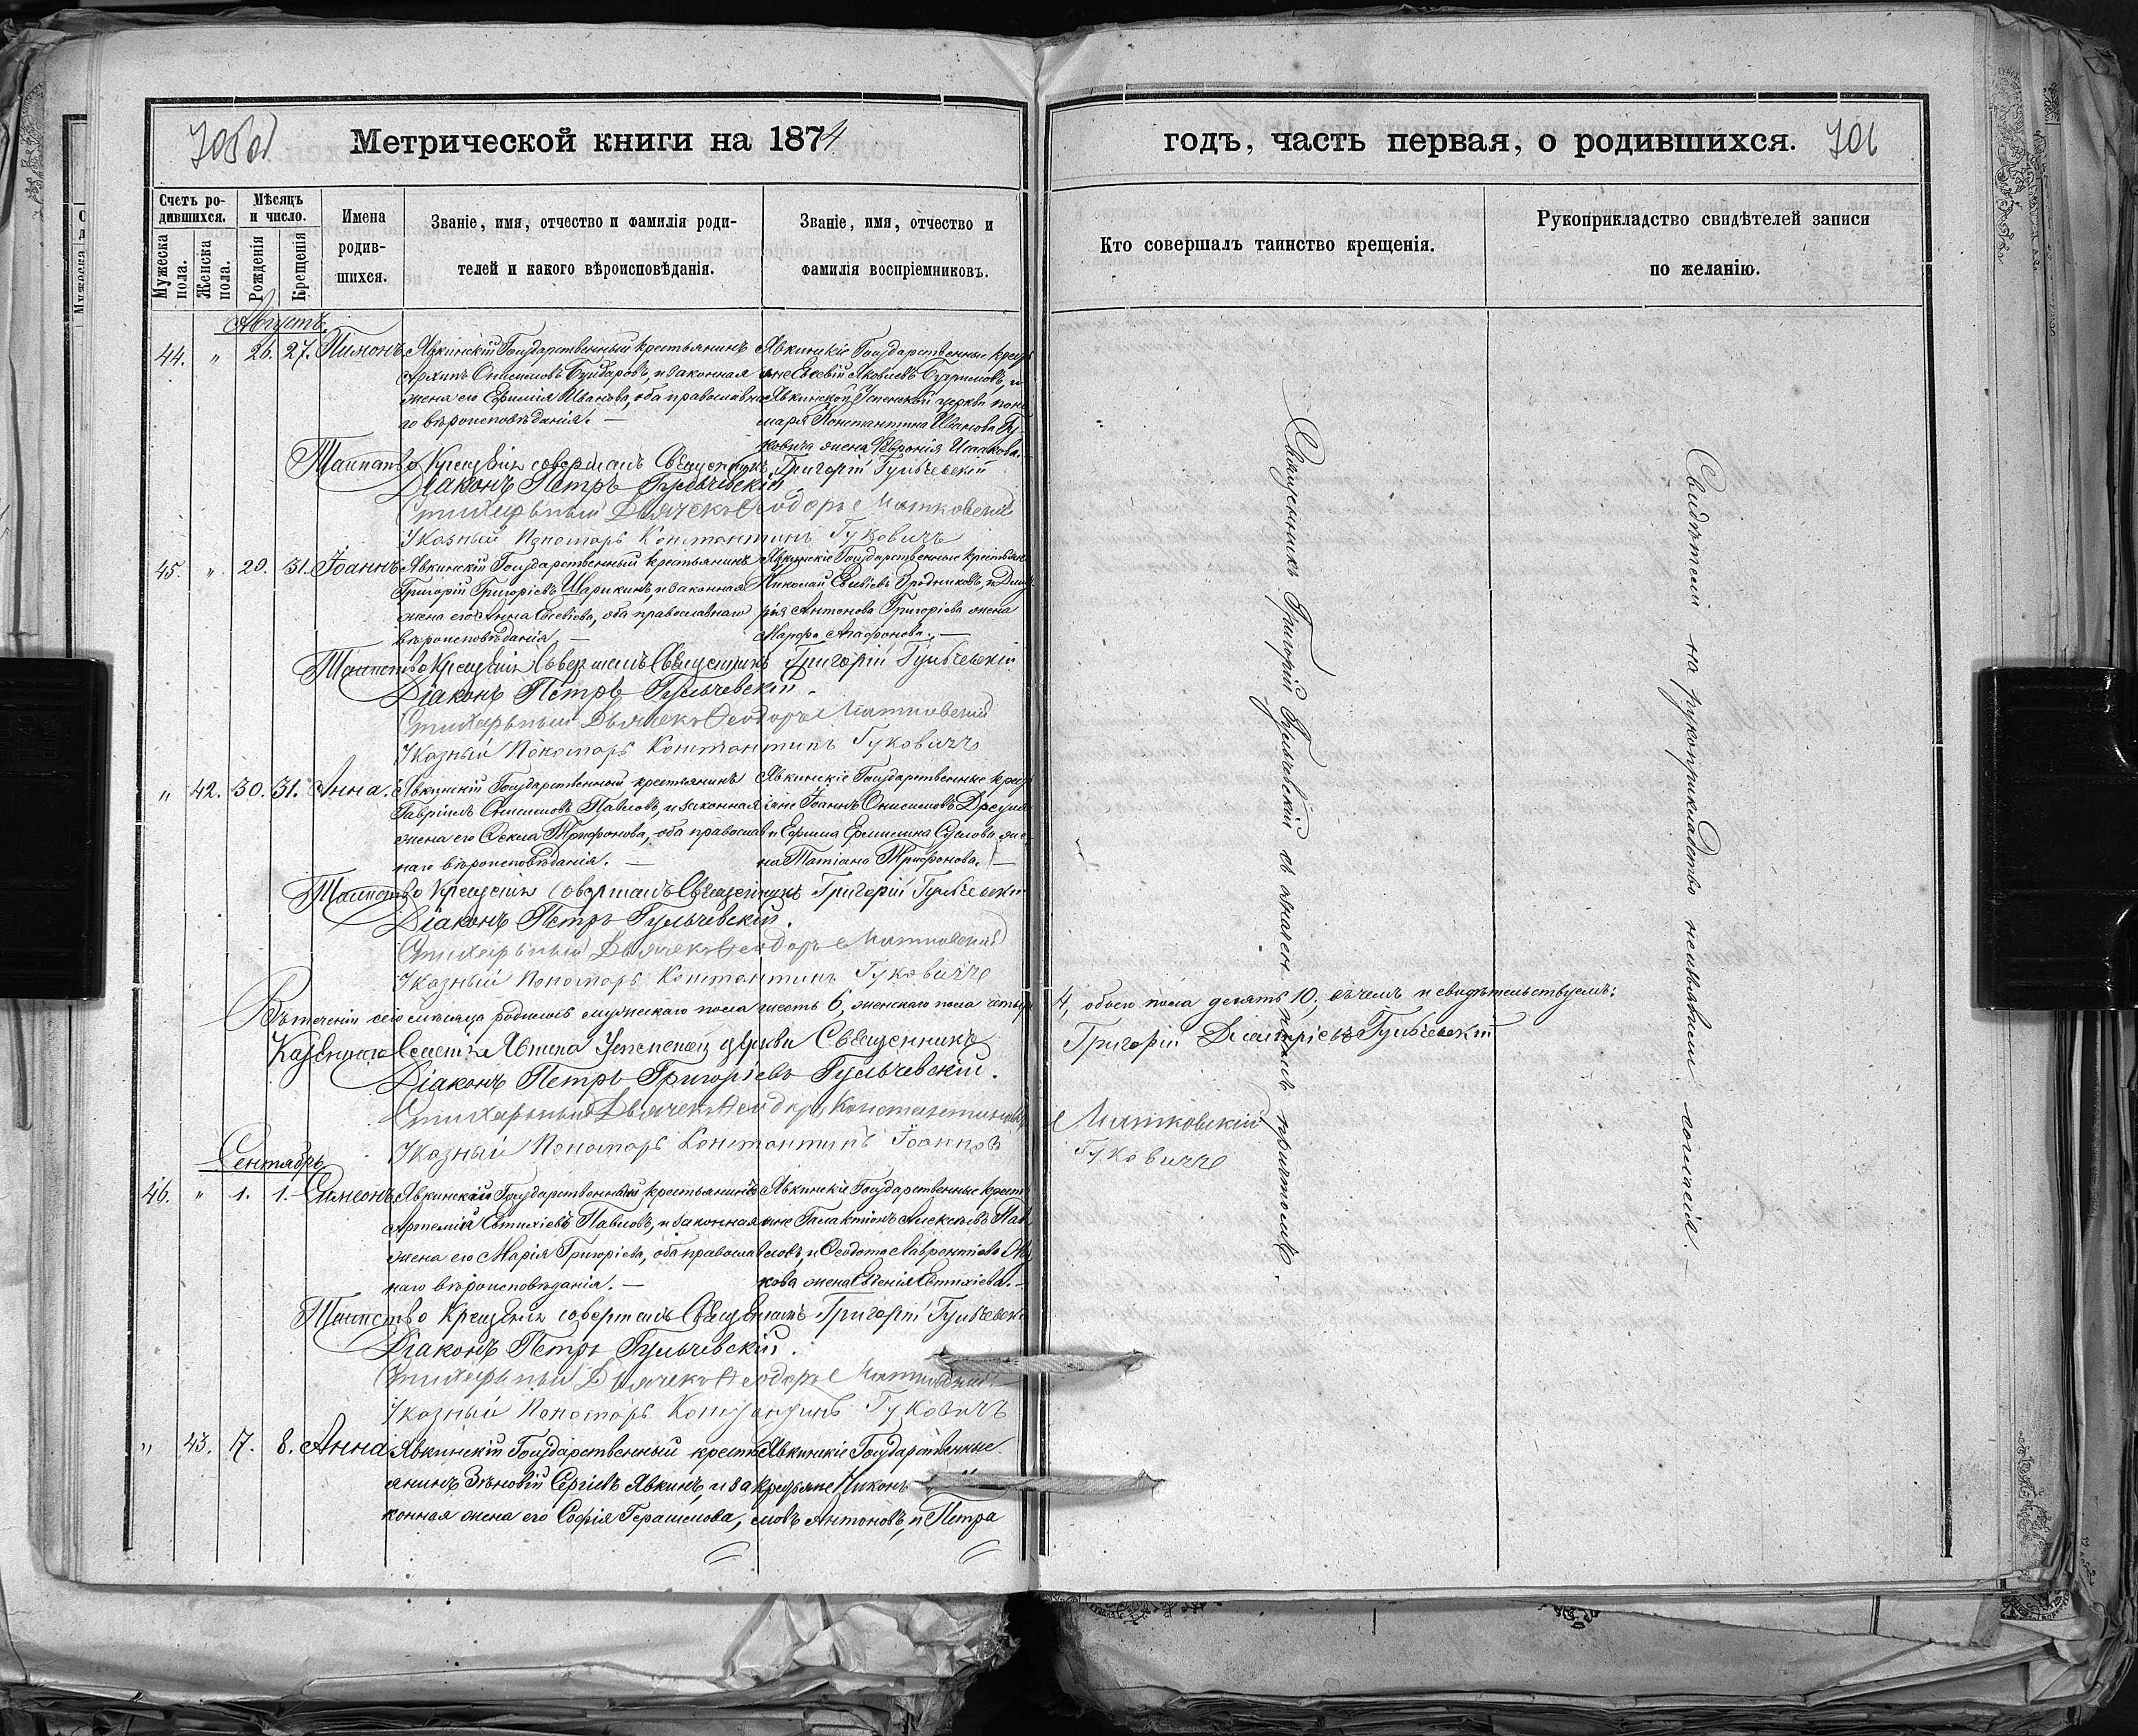 Метрической книги на 1874
годъ, часть первая, о родившихся. 701
Счетъ ро-
дившихся.
Мѣсяцъ
и число.
Мужеска
пола.
Женска
пола.
Рожденія
Крещенія
Имена
родив-
шихся.
Званіе, имя, отчество и фамилія роди-
телей и какого вѣроисповѣданія.
Званіе, имя, отчество и
фамилія воспріемниковъ.
Кто совершалъ таинство крещенія.
Рукоприкладство свидѣтелей записи
по желанію.
Августъ.
44. " 26. 27.
Явкинскій Государственный крестьянинъ
Архипъ Онисимовъ и законная
жена его Ефимія Иванова, оба православна
го вѣроисповѣданія. —
Явкинскіе Государственные крест
яне Евсевій Яковлевъ и
Явкинской Успенской церкви поно
маря Константина Иванова Гу
ковича жена Феvронія Исаакова. —
Таинство Крещенія совершалъ Священникъ Григорій Гульчевскій
Діаконъ Петръ Гульчевскій
Стихарьный Дьячекъ Ѳеодоръ Матковскій
Указный Пономарь Константинъ Гуковичъ
45. " 29. 31. Іоаннъ
Явкинскій Государственный крестьянинъ
Григорій Григорієвъ Шарикинъ, и законная
жена его Анна Евсевіева, оба православнаго
вѣроисповѣданія —
Явкинскіе Государственные крестьяне
Николай Евсевіевъ Бродниковъ, и Дмит
рія Антонова Григоріева жена
Марфа Агафонова. —
Таинство Крещенія Совершалъ Священникъ Григорій Гульчевскій
Діаконъ Петръ Гульчевскій.
Стихарьный Дьячекъ Ѳеодоръ Матковский
Указный Пономарь Константинъ Гуковичъ
" 42. 30. 31. Анна.
Явкинскій Государственный крестьянинъ
Гавріилъ Онисимовъ Павловъ, и законная
жена его Ѳекла Трифонова, оба православ
наго вѣроисповѣданія. —
Явкинскіе Государственные крест
яне Іоаннъ Онисимовъ
и Ефима Суслова же
на Татіана Трифонова. —
Таинство Крещенія Совершалъ Священникъ Григорій Гульчевскій
Діаконъ Петръ Гульчевскій.
Стихарьный Дьячекъ Ѳеодоръ Матковский
Указный Пономарь Константинъ Гуковичъ
Въ теченіи сего мѣсяца родилось мужескаго пола шесть 6, женскаго пола четыре 4, обоего пола десять 10; въ чемъ и свидѣтельствуемъ:
Казеннаго Селенія Явкина Успенской церкви Священникъ Григорій Димитріевъ Гульчевскій
Діаконъ Петръ Григоріевъ Гульчевскій.
Стихарьный Дьячекъ Ѳеодоръ Константиновъ Матковскій
Указный Пономарь Константинъ Іоанновъ Гуковичъ
Сентябрь
46. " 1. 1. Симеонъ
Явкинскій Государственный крестьянинъ
Артемій Евтихіевъ Павловъ, и законная
жена его Марія Григоріева, оба православ
наго вѣроисповѣданія. —
Явкинскіе Государственные крест
яне Галактіонъ Алексѣевъ Пав
ловъ, и Ѳеодота Лаврентіева
кова жена Евгенія Евтихіева. —
Таинство Крещенія совершалъ Священникъ Григорій Гульчевскій
Діаконъ Петръ Гульчевскій.
Стихарьный Дьячекъ Ѳеодоръ Матковский
Указный Пономарь Константинъ Гуковичъ
" 43. 7. 8. Анна
Явкинскій Государственный кресть
янинъ Зѣновій Сергіевъ Явкинъ, и за
конная жена его Софія Герасимова,
Явкинскіе Государственные
крестьяне Никонъ
мовъ Антоновъ, и Петра
Священникъ Григорій Гульчевскій съ причтомъ.
Свидѣтели на рукоприкладство неизъявили согласія. —